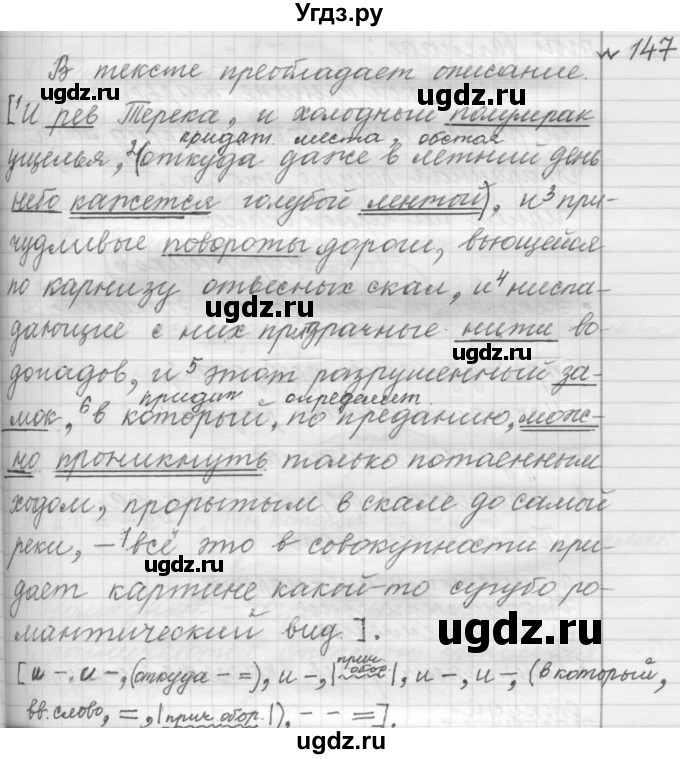 Угдз.ру
№ 147
В тексте преобладает описание.
[¹И рев Терека, и холодный полумрак
придат. места, обстоя
ущелья, ²(откуда даже в летний день
небо кажется голубой лентой), и ³при-
чудливые повороты дороги, вьющейся
по карнизу отвесных скал, и ⁴ниспа-
дающие с них призрачные нити во-
допадов, и ⁵этот разрушенный за-
придат. определит.
мок, ⁶в который, по преданию, мож-
но проникнуть только потаенным
ходом, прорытым в скале до самой
реки, – ¹всё это в совокупности при-
дает картине какой-то сугубо ро-
мантический вид].
[и –, и –, (откуда – =), и –, |прич. обор.|, и –, и –, (в который,
вв. слово, =, |прич. обор.|), – – =].
ugdz.ru
ugdz.ru
ugdz.ru
ugdz.ru
ugdz.ru
ugdz.ru
ugdz.ru
ugdz.ru
ugdz.ru
ugdz.ru